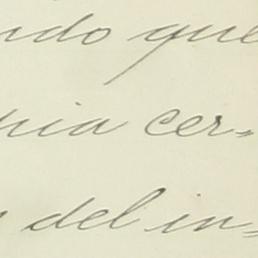 ndo que
hia cer-
del in-